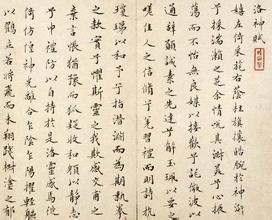 洛神賦
左倚采旄右蔭桂旗攘皓腕於神滸
兮採湍瀨之玄芝余情悅其淑美兮心振
蕩而不怡無良媒以接歡兮託微波以
通辭願誠素之先達兮解玉珮以要之
嗟佳人之信脩兮羌習禮而明詩抗
瓊珶以和予兮指潛淵而為期執眷
之款實兮懼斯靈之我欺感交甫之
棄言悵猶豫而狐疑收和顏以靜志
兮申禮防以自持於是洛靈感焉徙
倚仿偟神光離合乍陰乍陽擢輕軀
以鶴立若將飛而未翔踐椒塗之郁